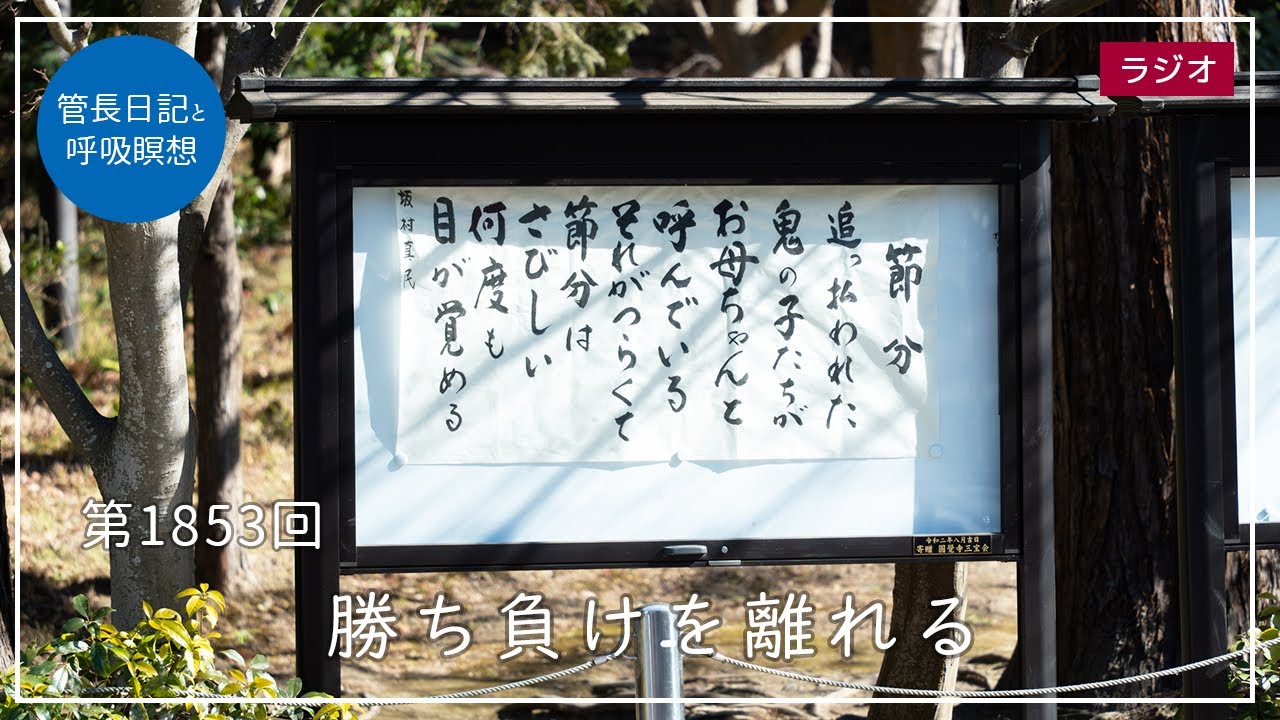 管長日記と
呼吸瞑想
ラジオ
節分
追っ払われた
鬼の子たちが
お母ちゃんと
呼んでいる
それがつらくて
節分は
さびしい
何度も
目が覚める
坂村真民
令和二年八月吉日
寄贈 圓覺寺三宝会
第1853回
勝ち負けを離れる